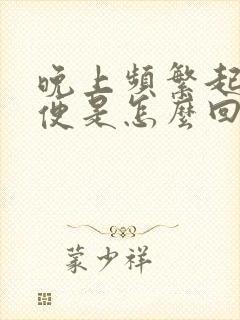 晚上頻繁起
便是怎麼回
蒙少祥